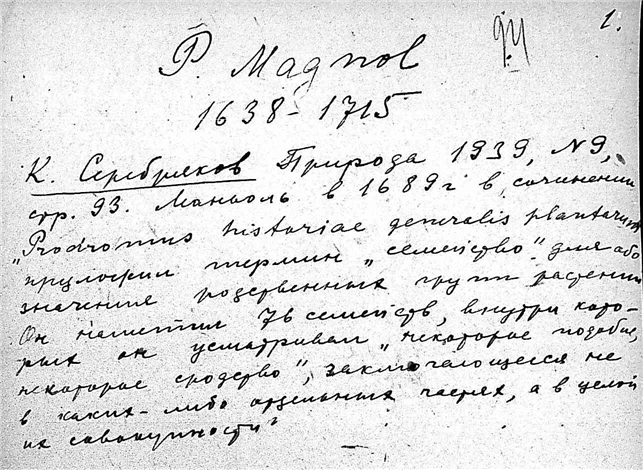 1.
Р. Магнов
1638-1715
К. Серебряков Природа 1939, N9,
стр. 93. Маньоль в 1689г в сочинении
„Prodromus historiae generalis plantarum
предложил термин „семейство" для обо
значения родственных групп растений
Он наметил 76 семейств, внутри кото-
рых он усматривал „некоторое подобие,
некоторое сродство", заключающееся не
в каких-либо отдельных частях, а в целой
их совокупности"